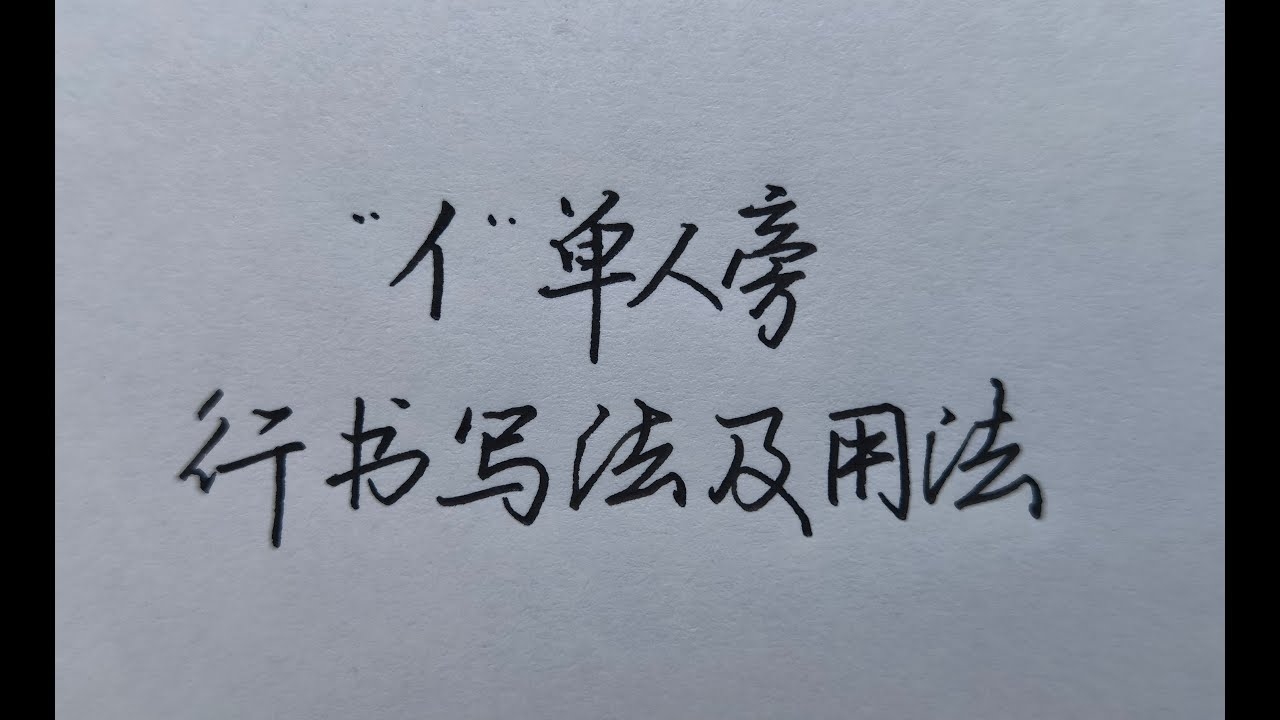 “亻”单人旁
行书写法及用法